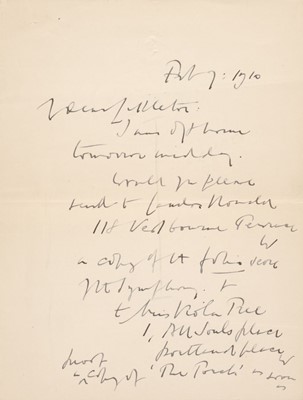 Feb 9: 1910
Dear Littleton:
I am off home
tomorrow midday.
Would you please
send to Landon Ronald
118 Westbourne Terrace
W
a copy of the folio score
of the Symphony. &
to Miss Viola Tree
1, All Souls place
Portland place
W
proof
a copy of 'The Torch' as soon as